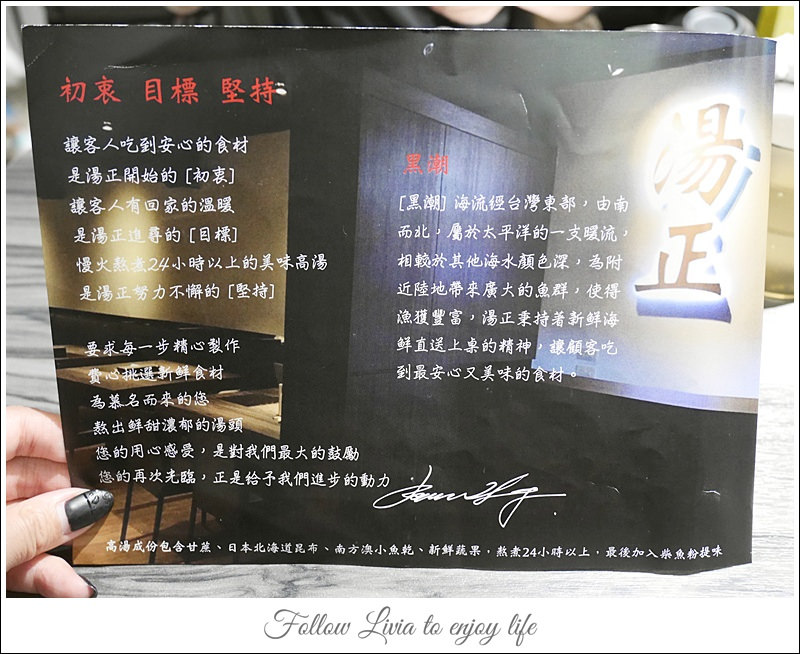 初衷 目標 堅持
讓客人吃到安心的食材
是湯正開始的［初衷］
讓客人有回家的溫暖
是湯正追尋的［目標］
慢火熬煮24小時以上的美味高湯
是湯正努力不懈的［堅持］
要求每一步精心製作
費心挑選新鮮食材
為慕名而來的您
熬出鮮甜濃郁的湯頭
您的用心感受，是對我們最大的鼓勵
您的再次光臨，正是給予我們進步的動力
黑潮
［黑潮］海流經台灣東部，由南
而北，屬於太平洋的一支暖流，
相較於其他海水顏色深，為附
近陸地帶來廣大的魚群，使得
漁獲豐富，湯正秉持著新鮮海
鮮直送上桌的精神，讓顧客吃
到最安心又美味的食材。
湯正
高湯成份包含甘蔗、日本北海道昆布、南方澳小魚乾、新鮮蔬果，熬煮24小時以上，最後加入柴魚粉提味
Follow Livia to enjoy life